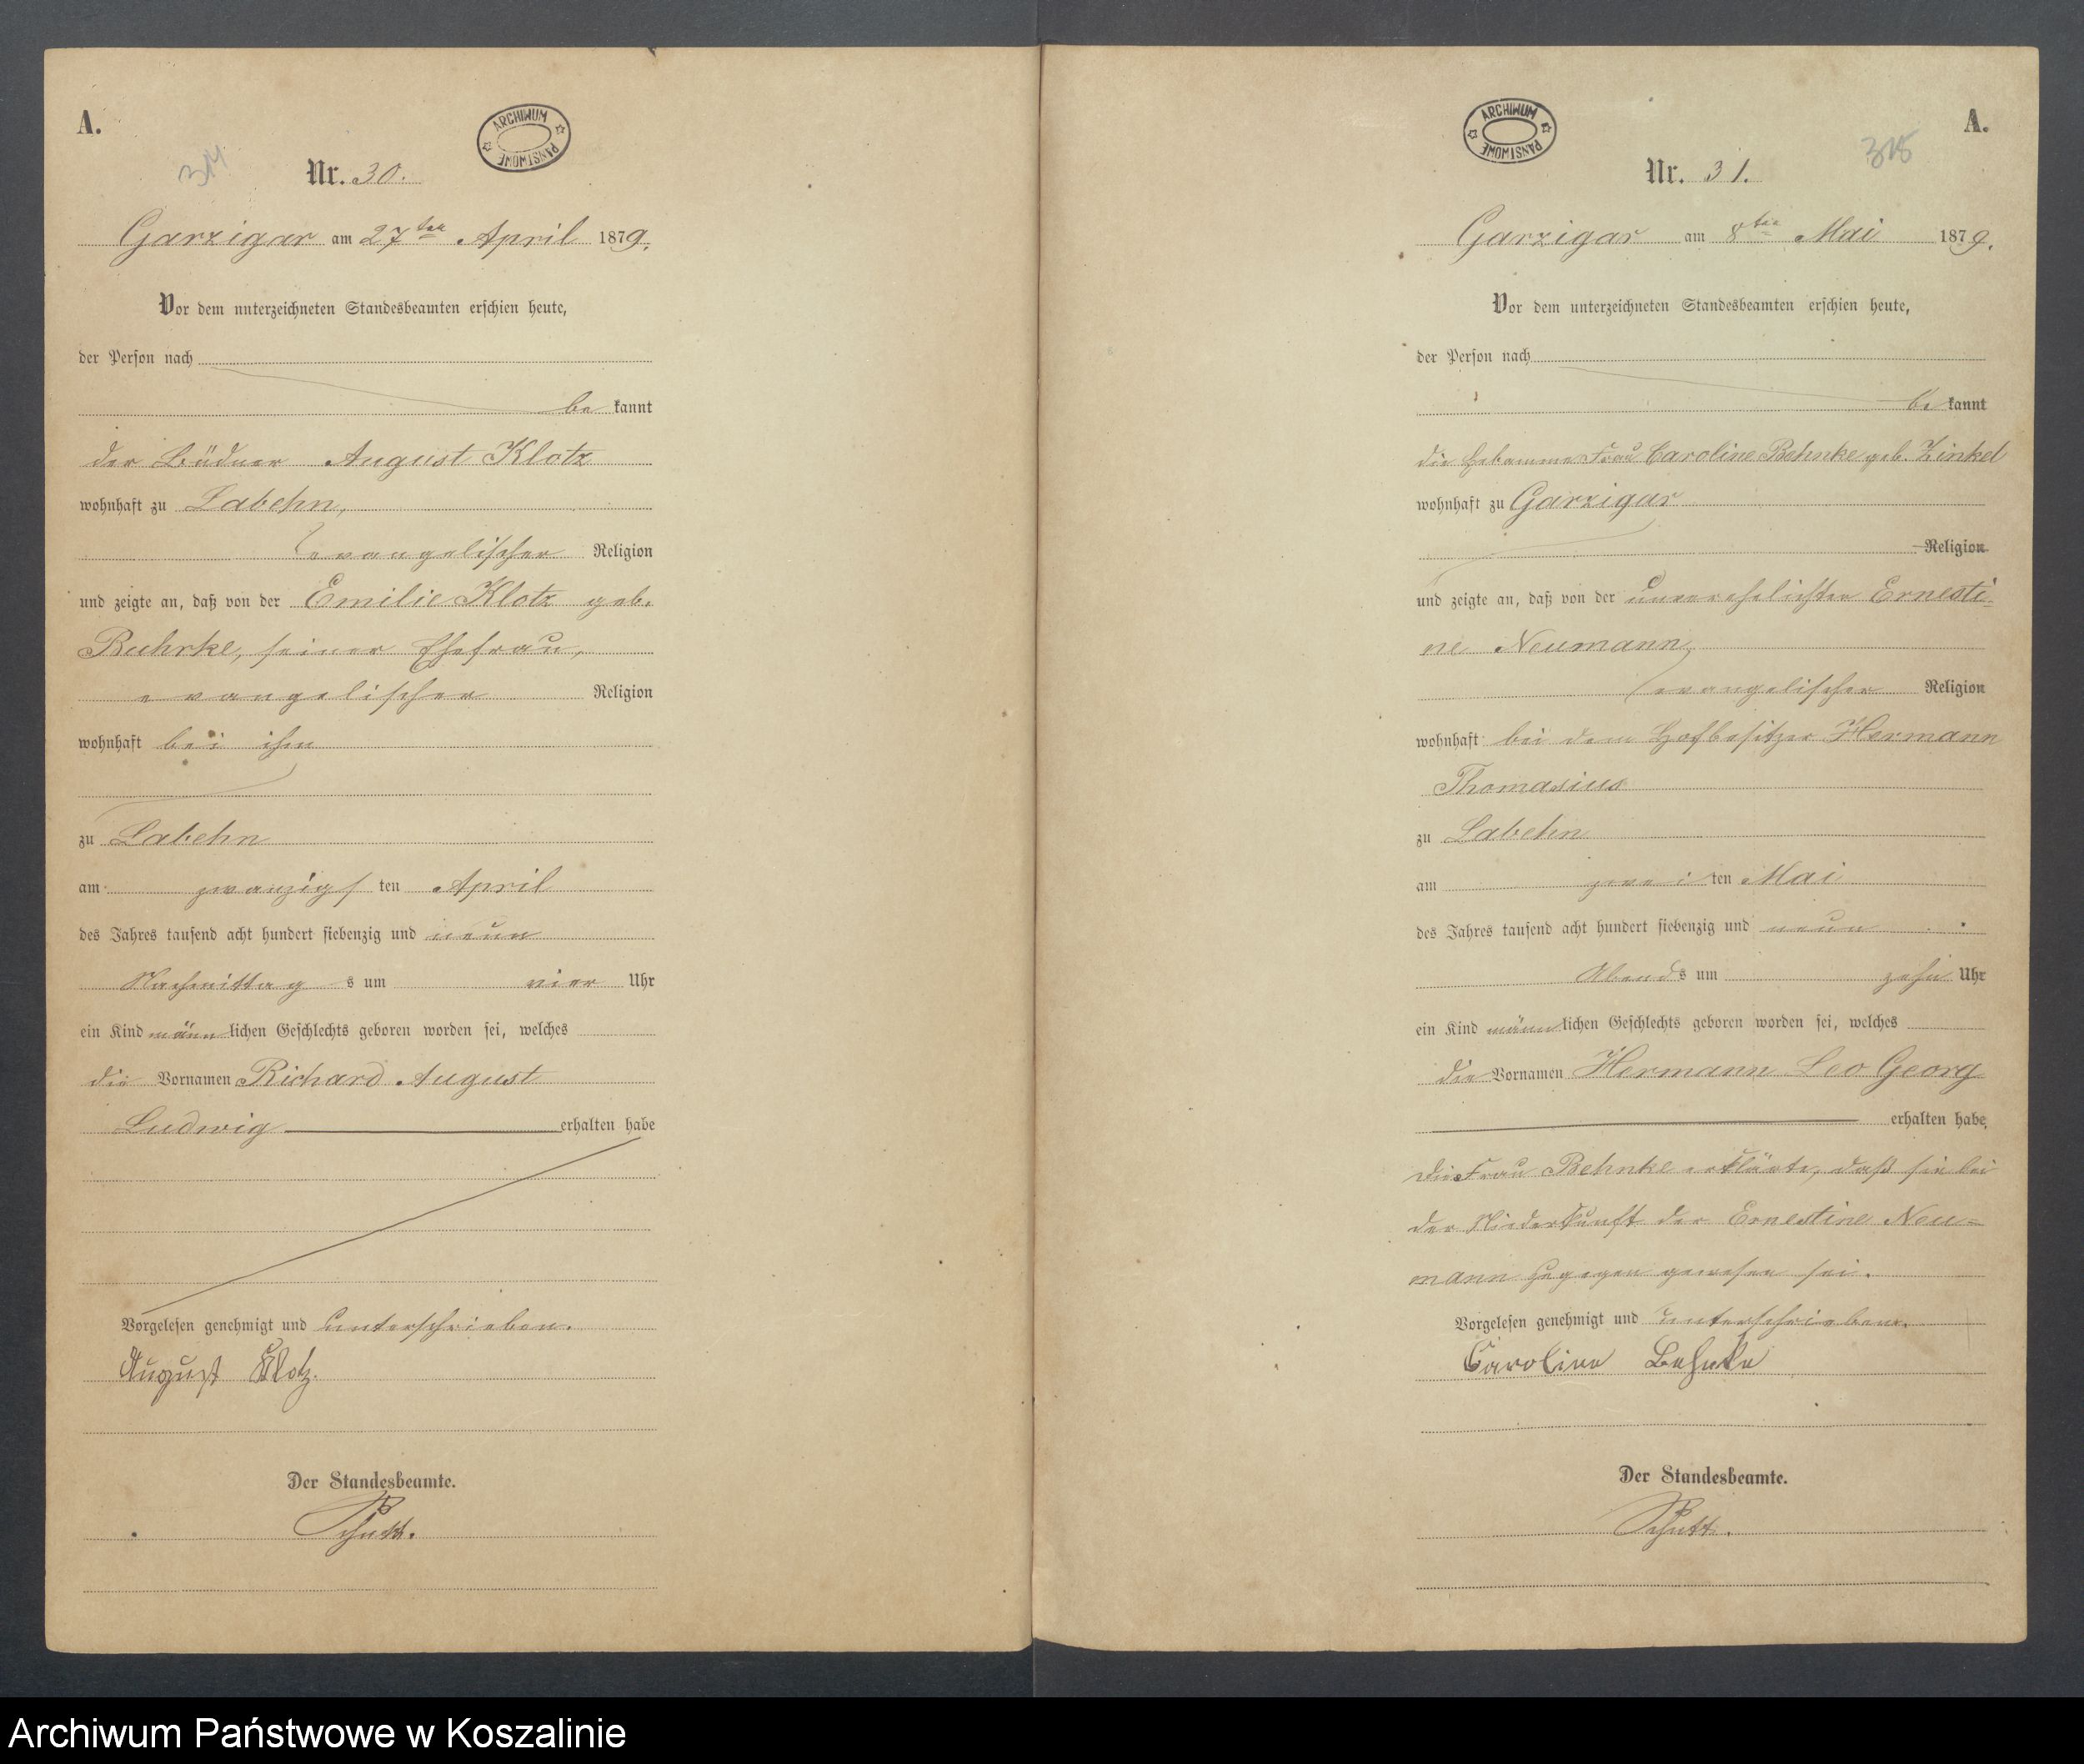 A.
314
Nr. 30.
ARCHIWUM PAŃSTWOWE
Garzigar am 27ten April 1879.
Vor dem unterzeichneten Standesbeamten erschien heute,
der Person nach
be kannt
der Büdner August Klotz
wohnhaft zu Labehn,
evangelischer Religion
und zeigte an, daß von der Emilie Klotz geb.
Buhrke, seiner Ehefrau,
evangelischer Religion
wohnhaft bei ihm
zu Labehn
am zwanzigsten April
des Jahres tausend acht hundert siebenzig und neun
Nachmittags um vier Uhr
ein Kind männlichen Geschlechts geboren worden sei, welches
die Vornamen Richard August
Ludwig erhalten habe
Vorgelesen genehmigt und unterschrieben.
August Klotz.
Der Standesbeamte.
A.
315
Nr. 31.
ARCHIWUM PAŃSTWOWE
Garzigar am 8ten Mai 1879.
Vor dem unterzeichneten Standesbeamten erschien heute,
der Person nach
be kannt
die Hebamme Frau Caroline Behnke geb. Zinkel
wohnhaft zu Garzigar
Religion
und zeigte an, daß von der unverehelichten Ernesti-
ne Neumann,
evangelischer Religion
wohnhaft bei dem Hofbesitzer Hermann
Thomasius
zu Labehn
am zweiten Mai
des Jahres tausend acht hundert siebenzig und neun
Abends um zehn Uhr
ein Kind männlichen Geschlechts geboren worden sei, welches
die Vornamen Hermann Leo Georg
erhalten habe,
Die Frau Behnke erklärte, daß sie bei
der Niederkunft der Ernestine Neu=
mann zugegen gewesen sei.
Vorgelesen genehmigt und unterschrieben.
Caroline Behnke
Der Standesbeamte.
Archiwum Państwowe w Koszalinie